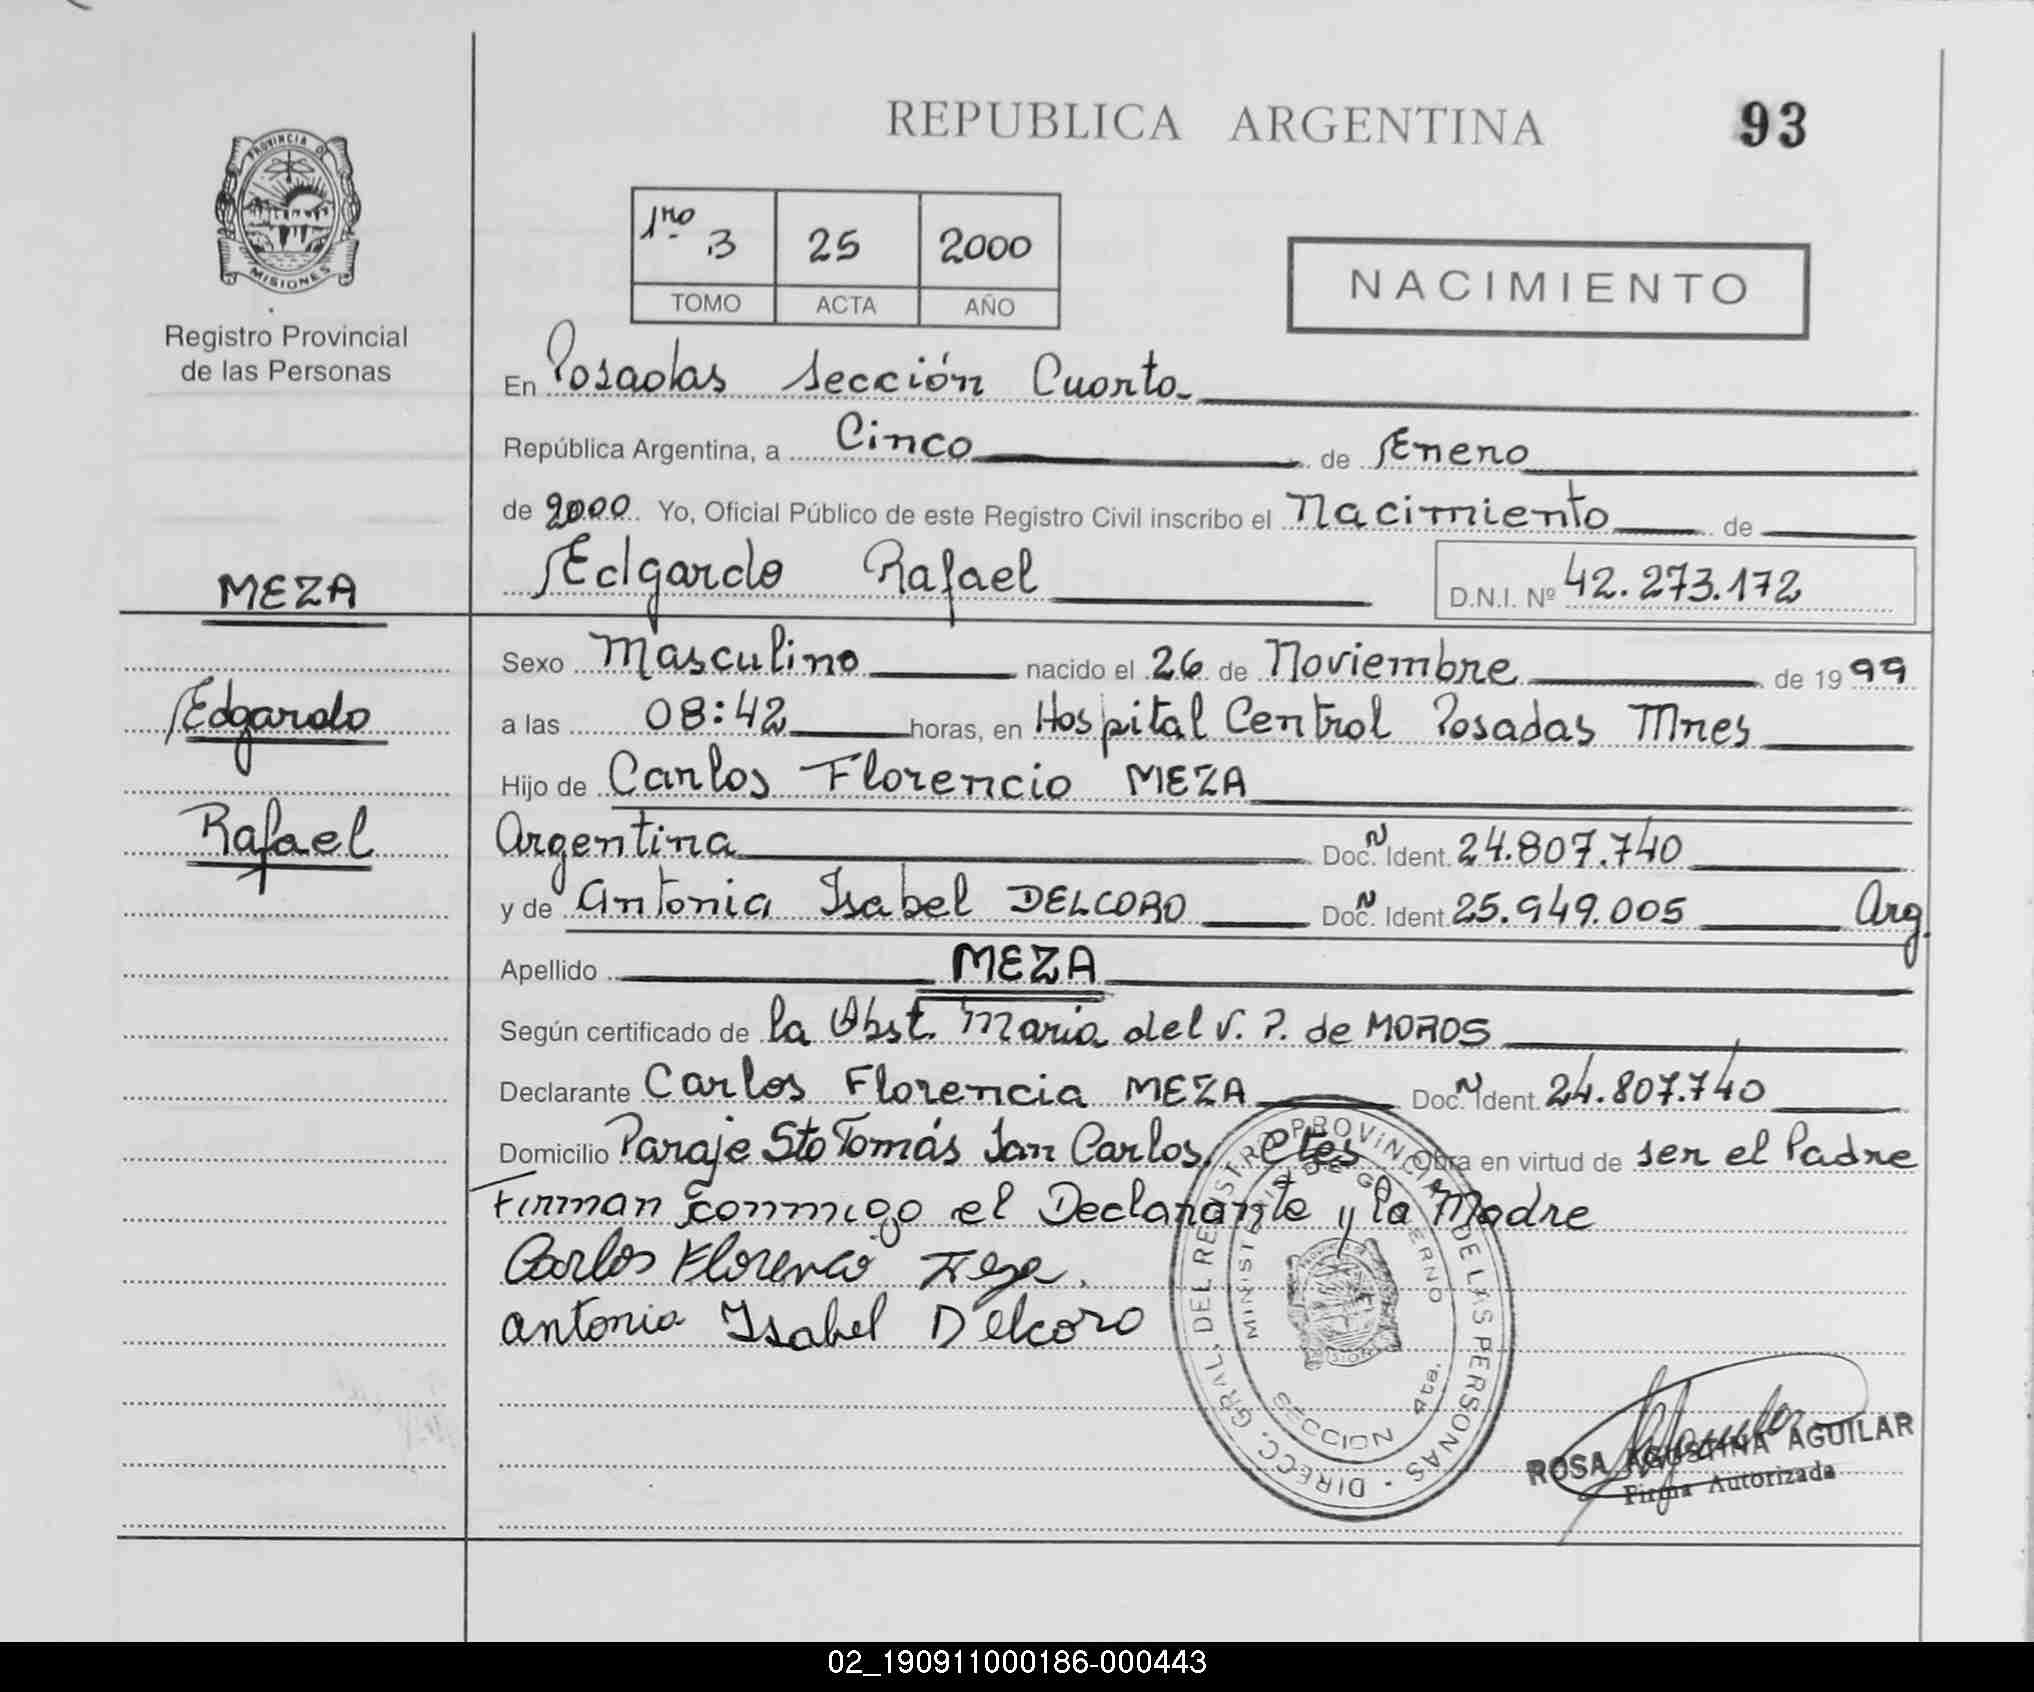 REPUBLICA ARGENTINA 93
PROVINCIA D MISIONES
1ro 3 25 2000
TOMO ACTA AÑO
NACIMIENTO
Registro Provincial
de las Personas
En Posadas Sección Cuarta
República Argentina, a Cinco de Enero
de 2000 Yo, Oficial Público de este Registro Civil inscribo el Nacimiento de
Edgardo Rafael D.N.I. Nº 42.273.172
MEZA
Sexo Masculino nacido el 26 de Noviembre de 1999
Edgardo
a las 08:42 horas, en Hospital Central Posadas Mnes
Hijo de Carlos Florencio MEZA
Rafael
Argentina Doc. N Ident. 24.807.740
y de Antonia Isabel DELCORO Doc. N Ident. 25.949.005 Arg.
Apellido MEZA
Según certificado de la Obst. Maria del V. P. de MOROS
Declarante Carlos Florencia MEZA Doc. N Ident. 24.807.740
Domicilio Paraje Sto Tomás San Carlos, Ctes Obra en virtud de ser el Padre
Firman conmigo el Declarante y la Madre
Carlos Florencio Meza.
Antonia Isabel Delcoro
DIRECC. GRAL. DEL REGISTRO PROVINCIAL DE LAS PERSONAS
MINISTERIO DE GOBIERNO
SECCION 4ta.
ROSA AGUSTINA AGUILAR
Firma Autorizada
02_190911000186-000443